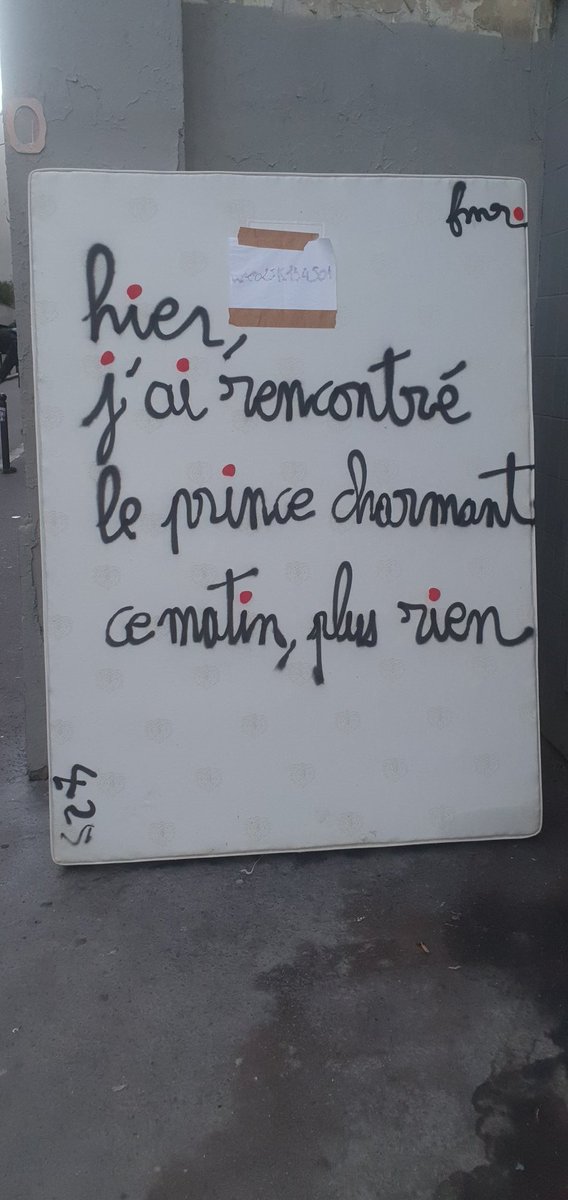 fmr.
hier,
j'ai rencontré
le prince charmant
ce matin, plus rien
425